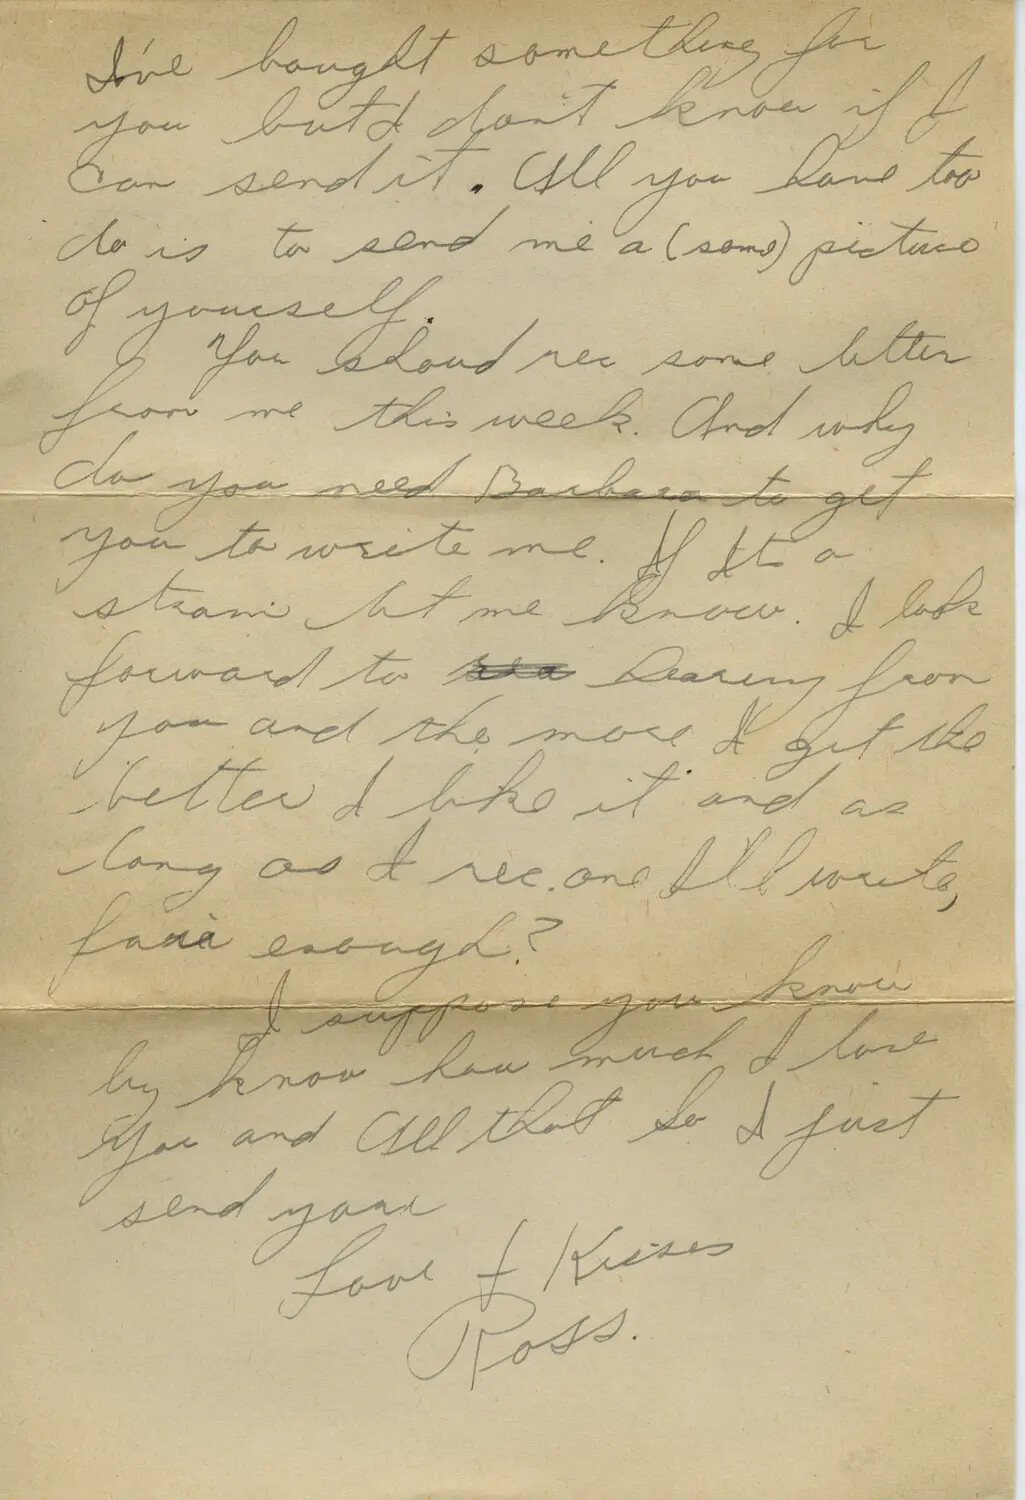 I've bought something for
you but I don't know if I
can send it. All you have too
do is to send me a (some) picture
of yourself.
You shoud rec some letter
from me this week. And why
do you need Barbara to get
you to write me. If Its a
strain let me know. I look
forward to hearing from
you and the more I get the
better I like it and as
long as I rec. one I'll write,
fair enough?
I suppose you know
by know how much I love
you and All that So I just
send your
Love & Kisses
Ross.